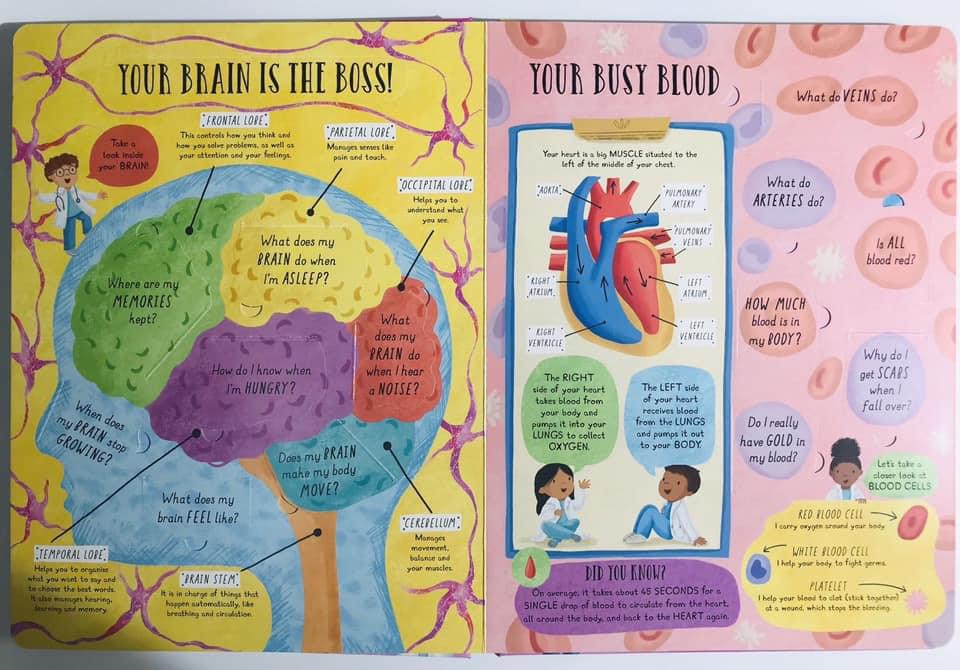 YOUR BRAIN IS THE BOSS!
Take a
look inside
your BRAIN!
FRONTAL LOBE
This controls how you think and
how you solve problems, as well as
your attention and your feelings.
PARIETAL LOBE
Manages senses like
pain and touch.
OCCIPITAL LOBE
Helps you to
understand what
you see.
Where are my
MEMORIES
kept?
What does my
BRAIN do when
I'm ASLEEP?
How do I know when
I'm HUNGRY?
What
does my
BRAIN do
when I hear
a NOISE?
When does
my BRAIN stop
GROWING?
Does my BRAIN
make my body
MOVE?
What does my
brain FEEL like?
TEMPORAL LOBE
Helps you to organise
what you want to say and
to choose the best words.
It also manages hearing,
learning and memory.
BRAIN STEM
It is in charge of things that
happen automatically, like
breathing and circulation.
CEREBELLUM
Manages
movement,
balance and
your muscles.
YOUR BUSY BLOOD
Your heart is a big MUSCLE situated to the
left of the middle of your chest.
AORTA
PULMONARY
ARTERY
PULMONARY
VEINS
RIGHT
ATRIUM
LEFT
ATRIUM
RIGHT
VENTRICLE
LEFT
VENTRICLE
The RIGHT
side of your heart
takes blood from
your body and
pumps it into your
LUNGS to collect
OXYGEN.
The LEFT side
of your heart
receives blood
from the LUNGS
and pumps it out
to your BODY.
DID YOU KNOW?
On average, it takes about 45 SECONDS for a
SINGLE drop of blood to circulate from the heart,
all around the body, and back to the HEART again.
What do VEINS do?
What do
ARTERIES do?
Is ALL
blood red?
HOW MUCH
blood is in
my BODY?
Why do I
get SCABS
when I
fall over?
Do I really
have GOLD in
my blood?
Let's take a
closer look at
BLOOD CELLS
RED BLOOD CELL
I carry oxygen around your body.
WHITE BLOOD CELL
I help your body to fight germs.
PLATELET
I help your blood to clot (stick together)
at a wound, which stops the bleeding.